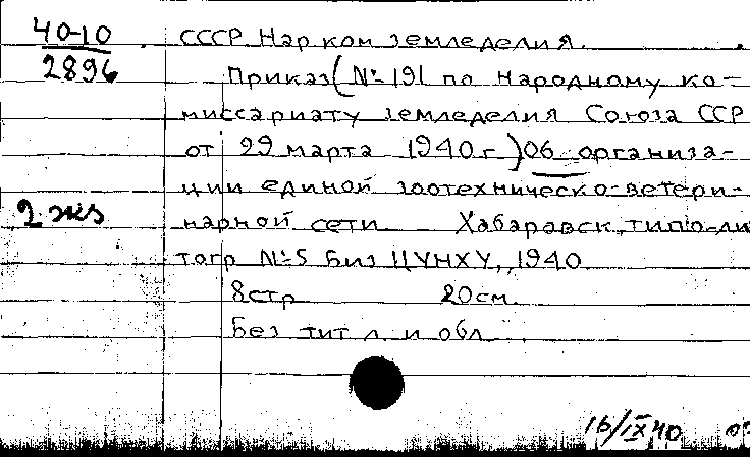 40-10
2896
СССР. Нарком земледелия.
Приказ (№ 191 по Народному ко-
миссариату земледелия Союза ССР
от 29 марта 1940 г.) Об организа-
ции единой зоотехническо-ветери-
2 экз
нарной сети Хабаровск, типо-ли
тогр №5 Биз ЦУНХУ, 1940.
8 стр 20 см.
Без тит л. и обл.
16/IX 40